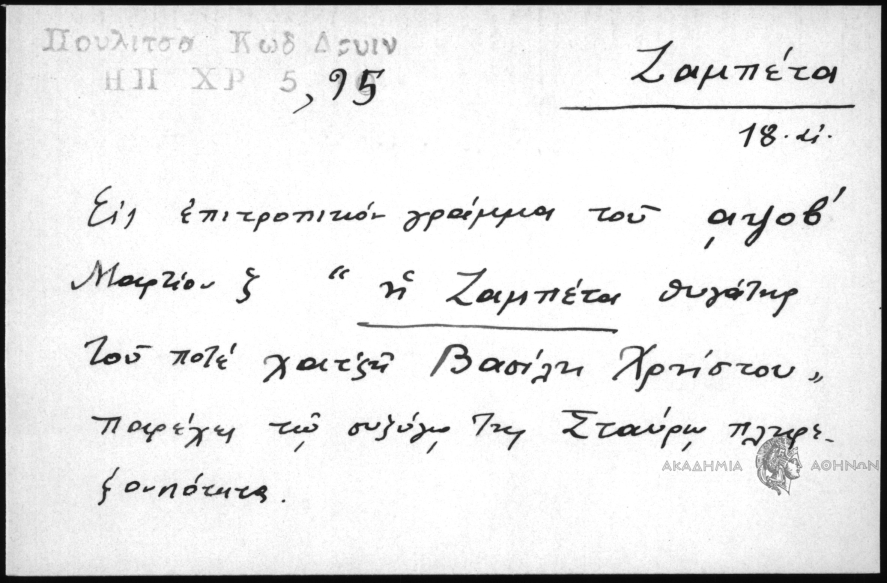 Πουλιτσα Κωδ Δρυιν
ΗΠ ΧΡ 5, 95
Ζαμπέτα
18. αἰ.
Εἰς ἐπιτροπικὸν γράμμα τοῦ ͵αψοβ′
Μαρτίου ξ " ἡ Ζαμπέτα θυγάτηρ
τοῦ ποτέ χατζῆ Βασίλη Χρήστου"
παρέχει τῷ συζύγῳ της Σταύρῳ πληρε-
ξουσιότητα.
ΑΚΑΔΗΜΙΑ ΑΘΗΝΩΝ